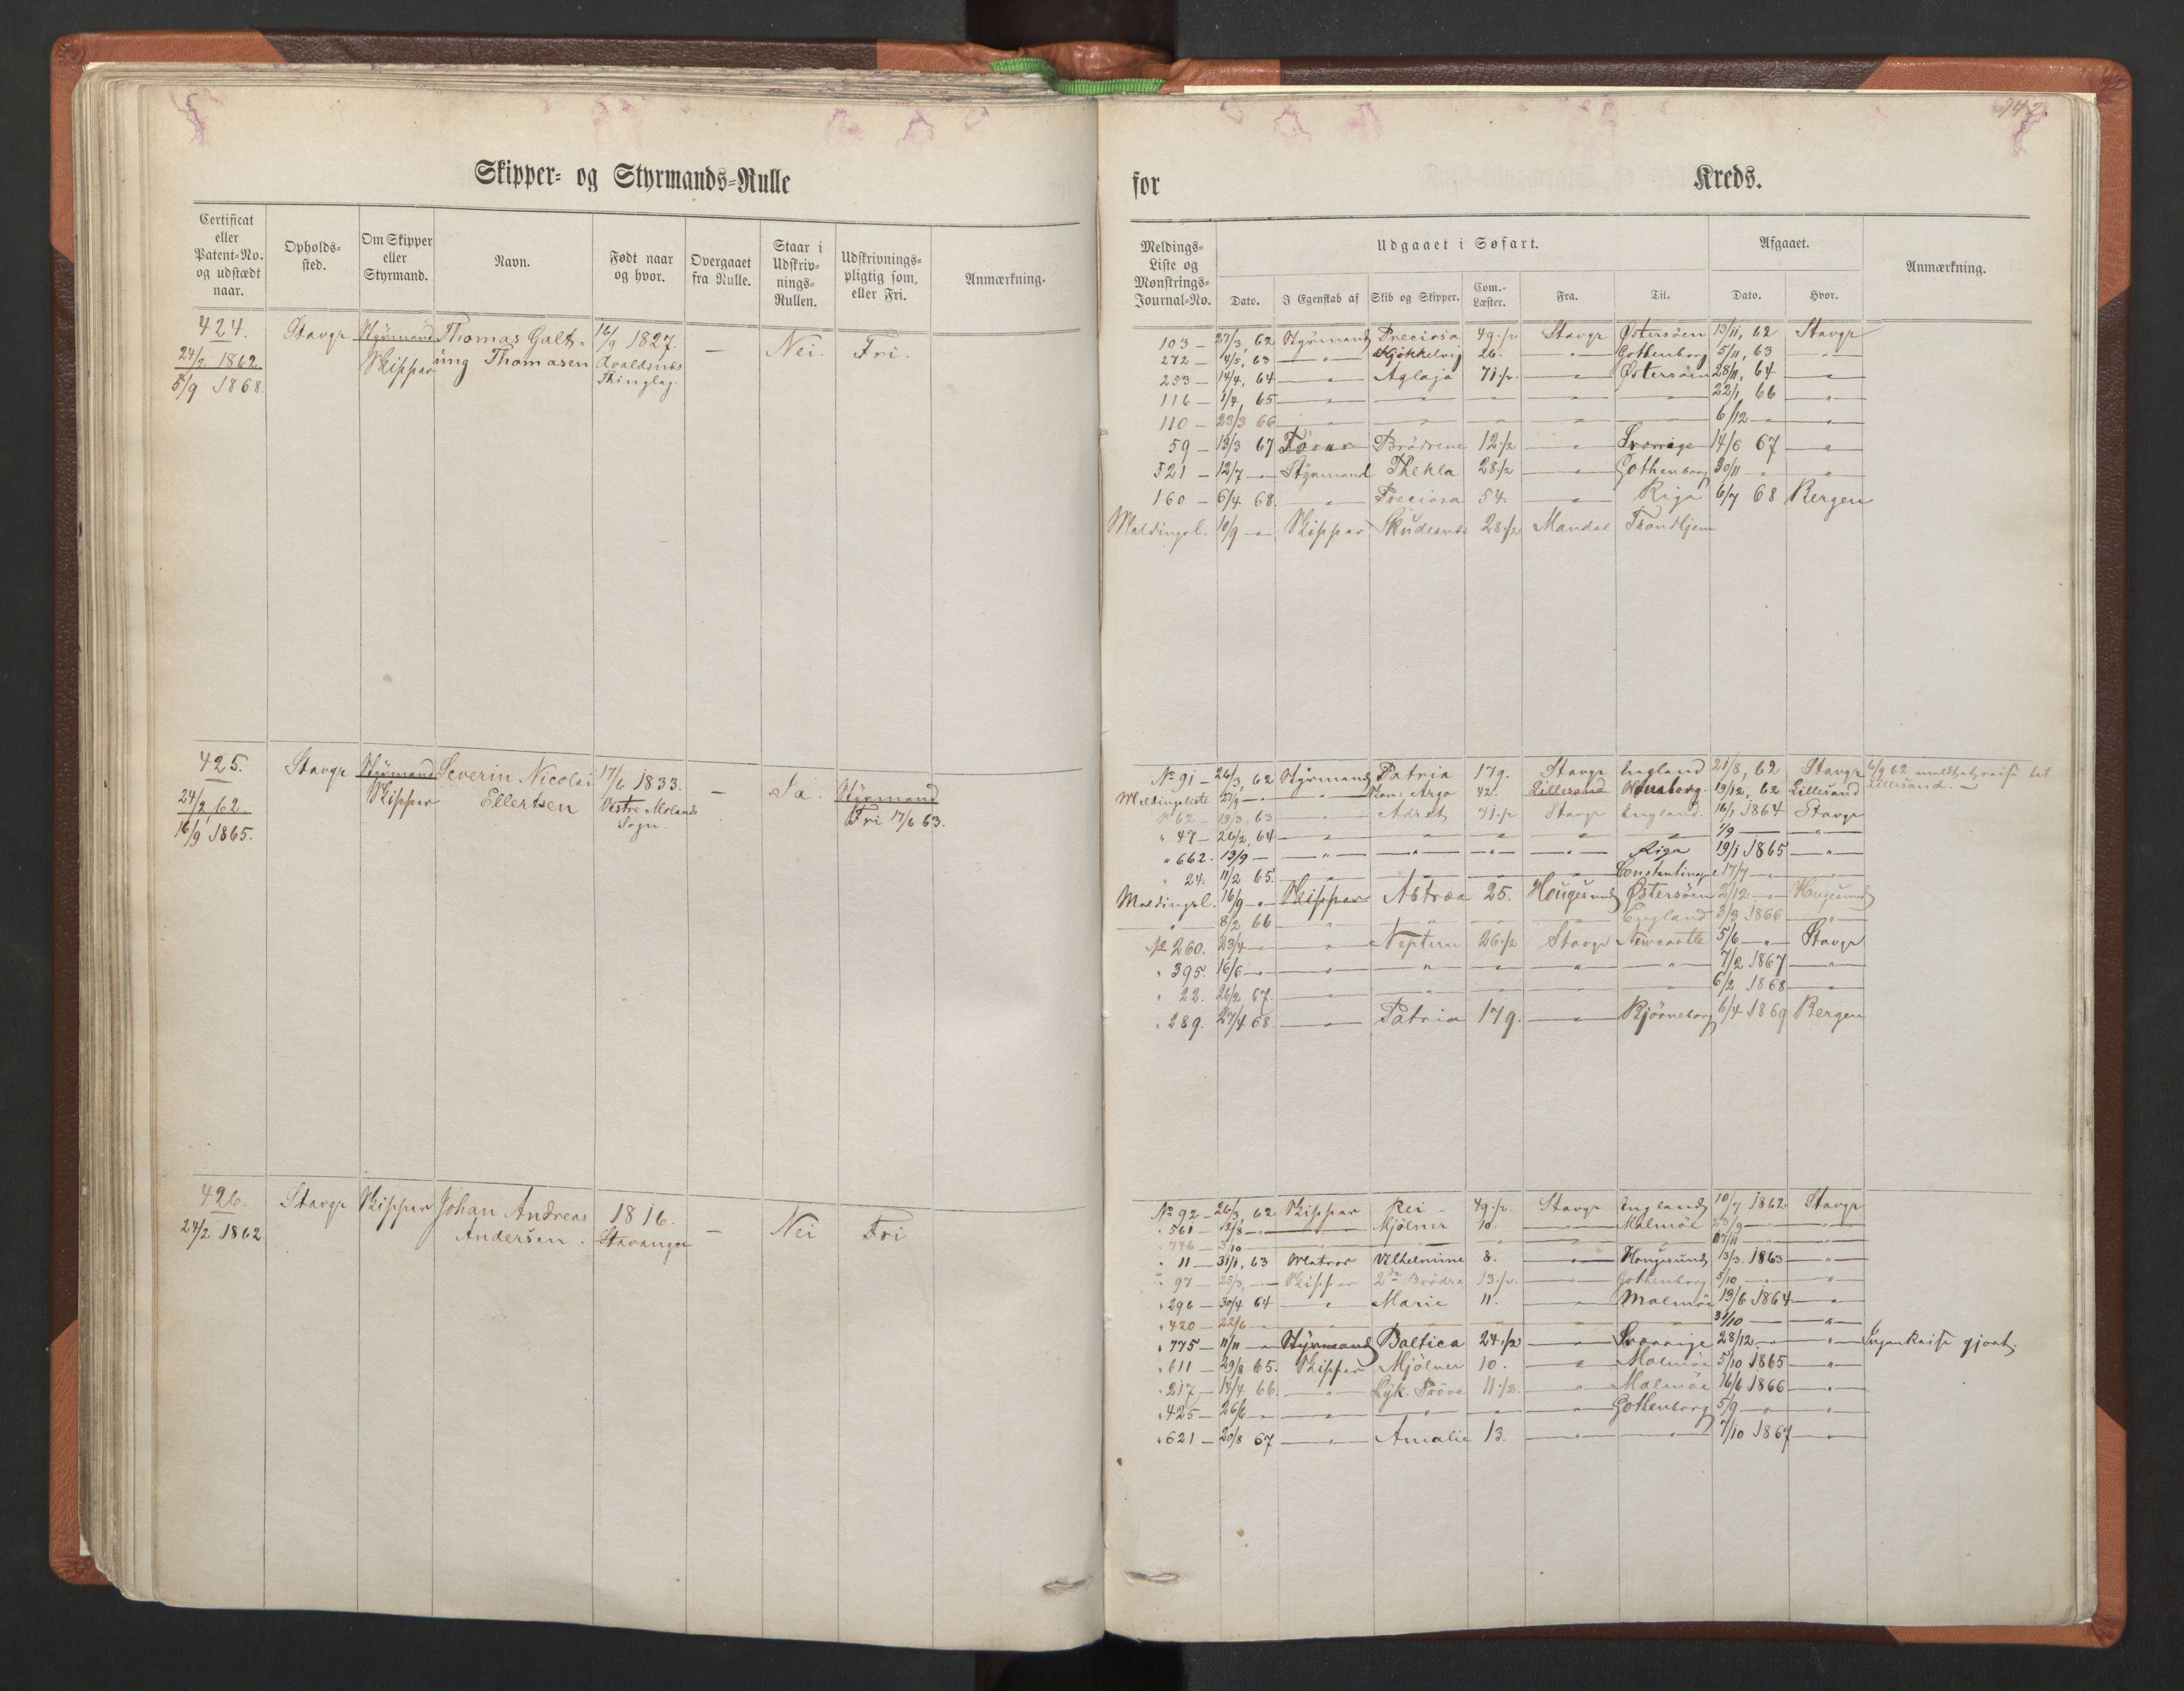 142
Skipper- og Styrmands-Rulle
for Kreds.
Certificat eller Patent-No. og udstædt naar.
Opholds-sted.
Om Skipper eller Styrmand.
Navn.
Født naar og hvor.
Overgaaet fra Rulle.
Staar i Udskriv-nings-Rullen.
Udskrivnings-pligtig som, eller Fri.
Anmærkning.
Meldings-Liste og Mønstrings-Journal-No.
Udgaaet i Søfart.
Dato.
I Egenskab af
Skib og Skipper.
Com.-Læster.
Fra.
Til.
Afgaaet.
Dato.
Hvor.
Anmærkning.
424. Stavgr Styrmand Thomas Galt- 16/9 1827. — Nei. Fri.
24/2 1862 Skipper ung Thomasen Avaldsnes
5/9 1868. Thinglag.
103 — 27/3, 62 Styrmand Preciosa 49 1/2 Stavgr Østersöen 13/11, 62 Stavgr
272 — 4/5, 63 — " — 26. — " — Gothenborg 5/11, 63 — " —
253 — 14/4, 64 — " — Aglaja 71 1/2 — " — Østersöen 28/11, 64 — " —
116 — 1/4, 65 — " — — " — — " — — " — — " — 22/1, 66 — " —
110 — 23/3 66 — " — — " — — " — — " — — " — 6/12 — " — — " —
59 — 13/3 67 Brödrene 12 1/2 — " — Sverrige 14/6 67 — " —
521 — 12/7 — " — Styrmand Thekla 28 1/2 — " — Gothenborg 30/11 — " — — " —
160 — 6/4 68. — " — Preciosa 54. — " — Riga 6/7 68 Bergen
Meldingsl. 10/9 — " — Skipper Skudesnes 28 1/2 Mandal Trondhjem
425. Stavgr Styrmand Severin Nicolai 17/6 1833. — Ja. Styrmand
24/2, 62 Skipper Ellertsen Vestre Molands Fri 17/6 63.
16/9 1865. Sogn.
No 91 — 26/3, 62 Styrmand Patria 179. Stavgr England 21/8, 62 Stavgr 6/9 62 til
Meldingsliste 27/9 — " — — " — Argo 42. Lillesand 19/12, 62 Lillesand Lillesand.
No 62 — 13/3, 63 — " — 71 1/2 Stavgr England. 16/1 1864 Stavgr
" 47 — 26/2, 64 — " — — " — — " — — " — — " — 1/9 — — " —
" 662. 13/9 — — " — — " — — " — — " — Riga 19/1 1865 — " —
" 24. 11/2 65. — " — — " — — " — — " — 17/7 — " — — " —
Meldingsl. 16/9 — " — Skipper Astræa 25. Hougesund Østersöen 2/12 — " — Hougesund
— " — 8/2 66 — " — — " — England 3/3 1866 — " —
No 260. 23/4 — " — — " — Neptun 26 1/2 Stavgr Newcastle 5/6 — " — Stavgr
" 395. 16/6 — " — — " — — " — — " — — " — — " — 7/2 1867 — " —
" 22. 26/2 67. — " — — " — — " — — " — — " — 6/2 1868 — " —
" 289. 27/4 68. — " — Patria 179. — " — Bjørneborg 6/4 1869 Bergen
426. Stavgr Skipper Johan Andreas 1816. — Nei Fri
24/2 1862 Andersen. Stavanger
No 92 — 26/3, 62 Skipper Rei — 49 1/2 Stavgr England 10/7 1862 Stavgr
" 561 — 12/8 — " — — " — Mjölner 10. — " — Malmöe 23/9 — " — — " —
" 746 — 3/10 — " — — " — — " — — " — — " — 17/11 — " — — " —
" 11 — 31/1, 63 Matros Vilhelmine 8. — " — Hougesund 13/3 1863 — " —
" 97 — 25/3, — " — Skipper 2de Brödre 13 1/2 — " — Gothenborg 5/10 — " — — " —
" 296 — 30/4 64 — " — Marie 11. — " — Malmöe 13/6 1864 — " —
" 420 — 22/6 — " — — " — — " — — " — — " — 31/10 — — " —
" 775 — 11/11 — " — Styrmand Baltica 24 1/2 — " — Sverrige 28/12 — " — — " — Ingen Reise gjort.
" 611 — 29/8 65. Skipper Mjölner 10. — " — Malmöe 5/10 1865 — " —
" 217 — 14/4 66. — " — Lyk. Pröve 11 1/2 — " — Malmöe 16/6 1866 — " —
" 425 — 26/6 — " — — " — — " — — " — — " — Gothenborg 5/9 — " — — " —
" 621 — 20/8 67 — " — Amalie 13. — " — — " — 7/10 1867 — " —